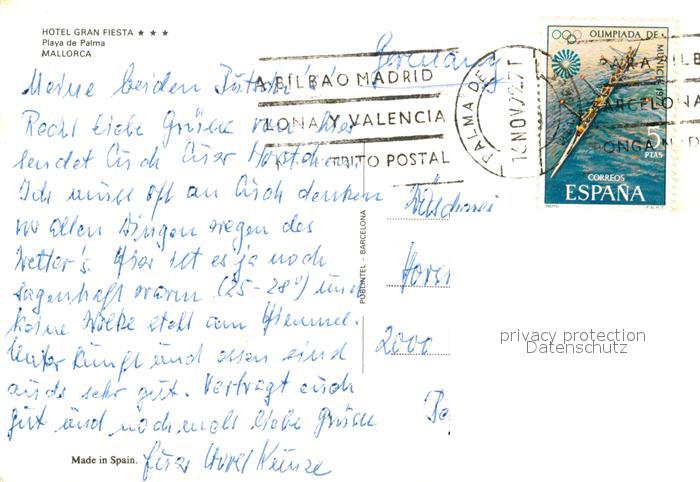 HOTEL GRAN FIESTA ★ ★ ★
Playa de Palma
MALLORCA
Germany
Meine beiden
Recht liebe Grüße von hier
sendet Euch Euer
Ich muß oft an Euch denken
vor allen Dingen wegen des
Wetter's. Hier ist es ja noch
sagenhaft warm (25-28°) und
keine Wolke steht am Himmel.
Unterkunft und essen sind
auch sehr gut. Vertragt euch
gut und nochmals liebe Grüße
Euer
Made in Spain.
PUBLINTEL - BARCELONA
2000
A BILBAO MADRID
LONA Y VALENCIA
TRITO POSTAL
PALMA DE
16 NOV 72
PARA BILB
BARCELONA
PONGA
OLIMPIADA DE
MUNICH
5
PTAS
CORREOS
ESPAÑA
privacy protection
Datenschutz